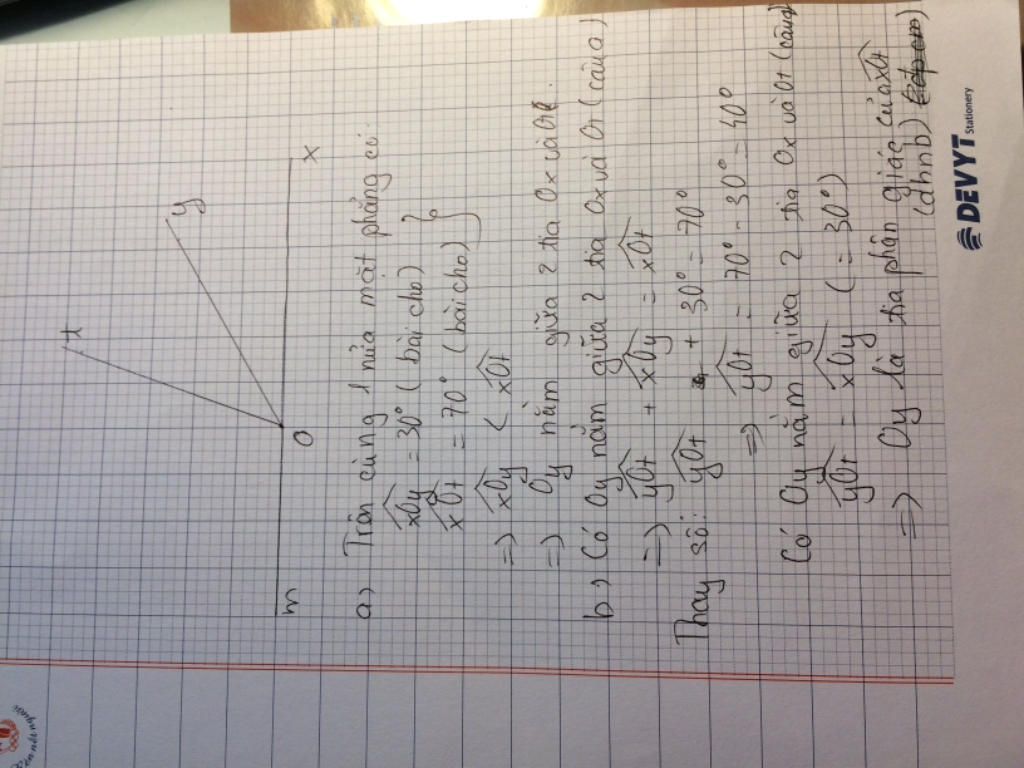 t
y
m
O
x
a) Trên cùng 1 nửa mặt phẳng có:
xOy = 30° (bài cho)
xOt = 70° (bài cho)
=> xOy < xOt
=> Oy nằm giữa 2 tia Ox và Ot.
b) Có Oy nằm giữa 2 tia Ox và Ot (câu a)
=> yOt + xOy = xOt
Thay số: yOt + 30° = 70°
=> yOt = 70° - 30° = 40°
Có Oy nằm giữa 2 tia Ox và Ot (câu a)
yOt = xOy (= 30°)
=> Oy là tia phân giác của xOt
(dhnb)
DEVYT
Stationery